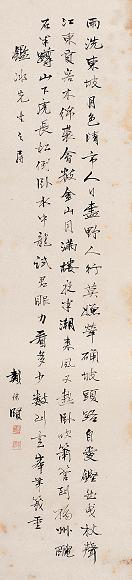 雨洗東坡月色清市人行盡野人行莫嫌犖确坡頭路自愛鏗然曳杖聲
江東賈客木綿裘會散金山月滿樓夜半潮來風又熟臥吹簫管到揚州醜
石半蹲山下虎長松倒臥水中龍試君眼力看多少數到雲峯第幾重
鑑冰先生之屬
戴